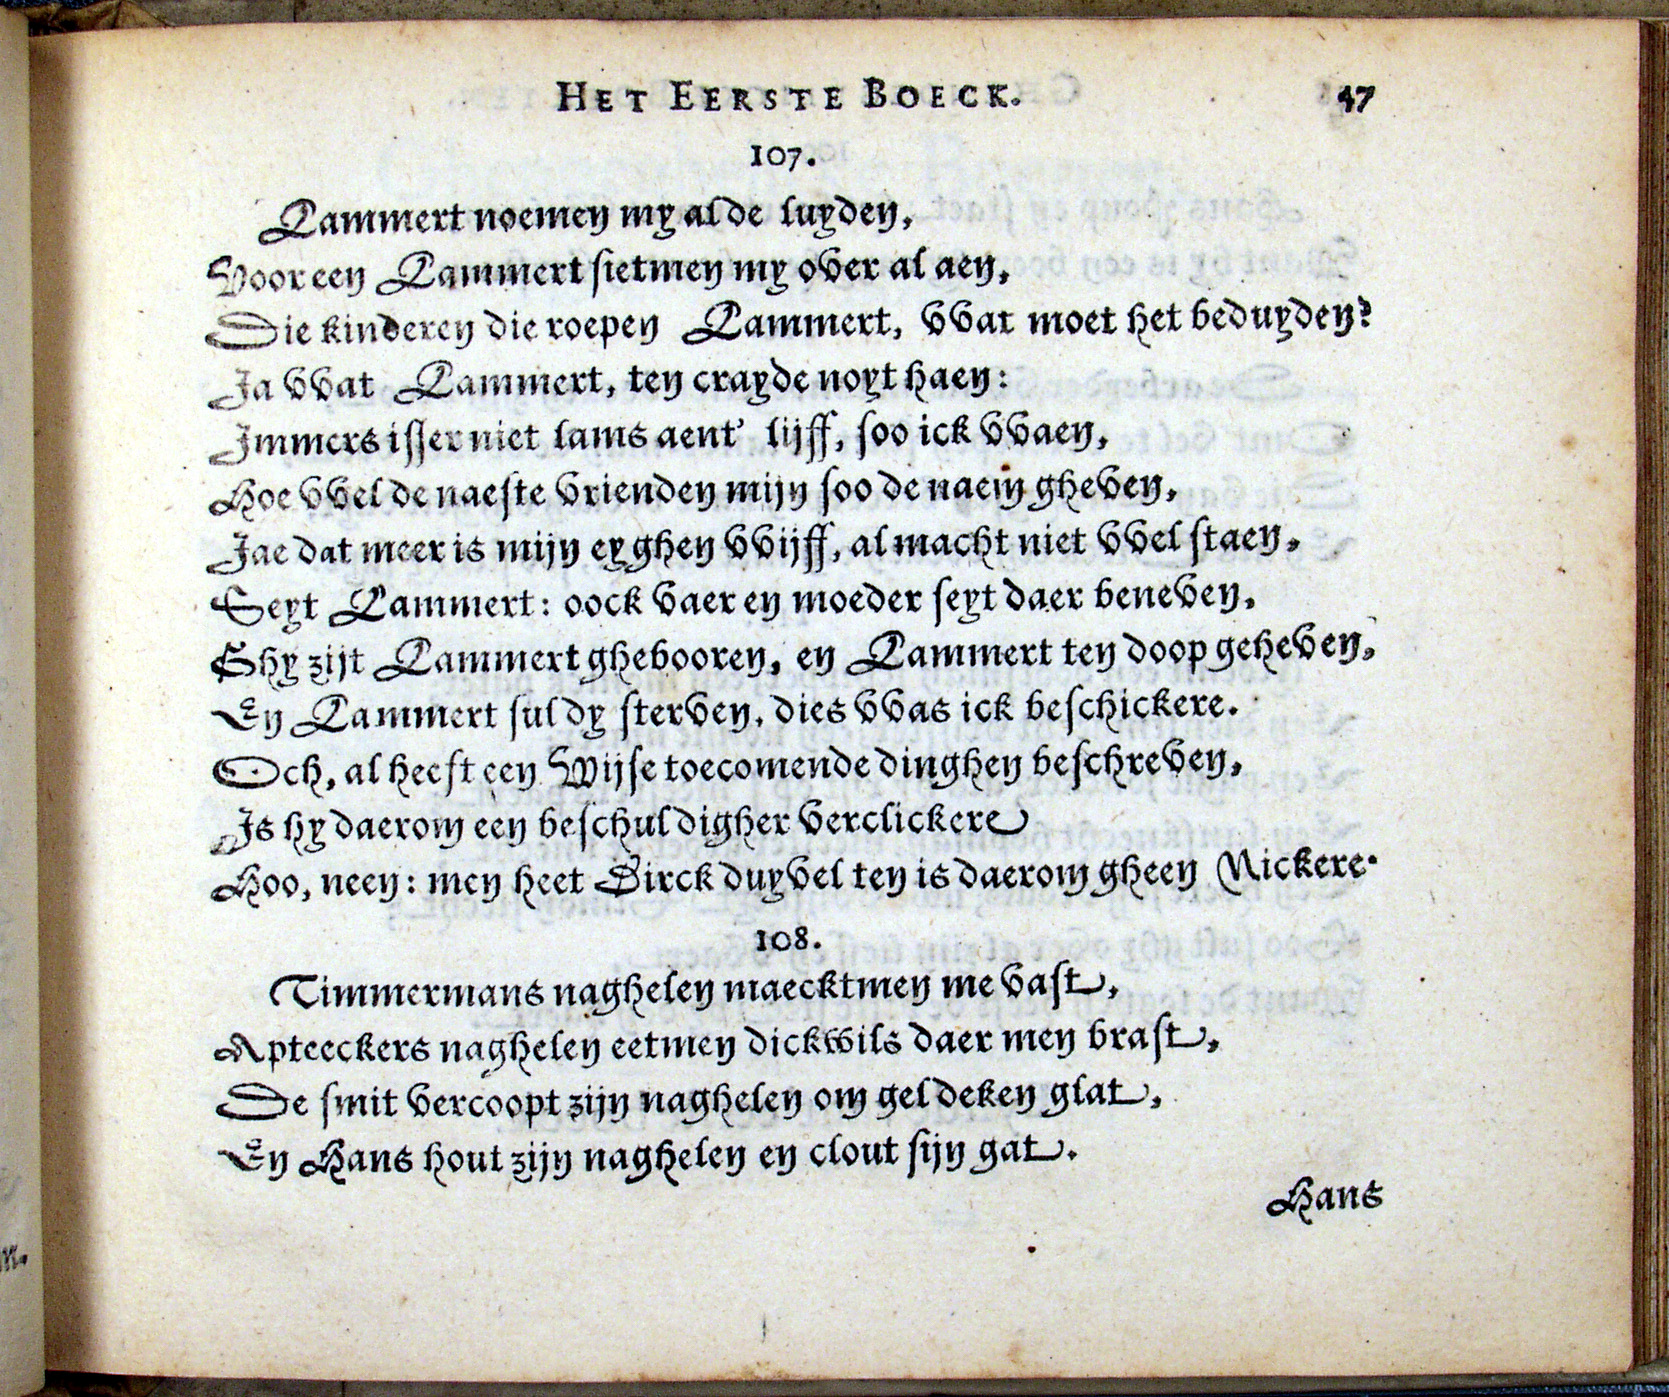 HET EERSTE BOECK. 47
107.
Lammert noemen my al de luyden,
Voor een Lammert sietmen my over al aen,
Die kinderen die roepen Lammert, vvat moet het beduyden?
Ja vvat Lammert, ten crayde noyt haen:
Jmmers isser niet lams aent' lijff, soo ick vvaen,
Hoe vvel de naeste vrienden mijn soo de naem gheven,
Jae dat meer is mijn eyghen vvijff, al macht niet vvel staen,
Seyt Lammert: oock vaer en moeder seyt daer beneven,
Ghy zijt Lammert ghebooren, en Lammert ten doop geheven,
En Lammert suldy sterven, dies vvas ick beschickere.
Och, al heeft een Wijse toecomende dinghen beschreven,
Is hy daerom een beschuldigher verclickere
Hoo, neen: men heet Dirck duyvel ten is daerom gheen Nickere.
108.
Timmermans naghelen maecktmen me vast,
Apteeckers naghelen eetmen dickwils daer men brast,
De smit vercoopt zijn naghelen om geldeken glat,
En Hans hout zijn naghelen en clout sijn gat.
Hans